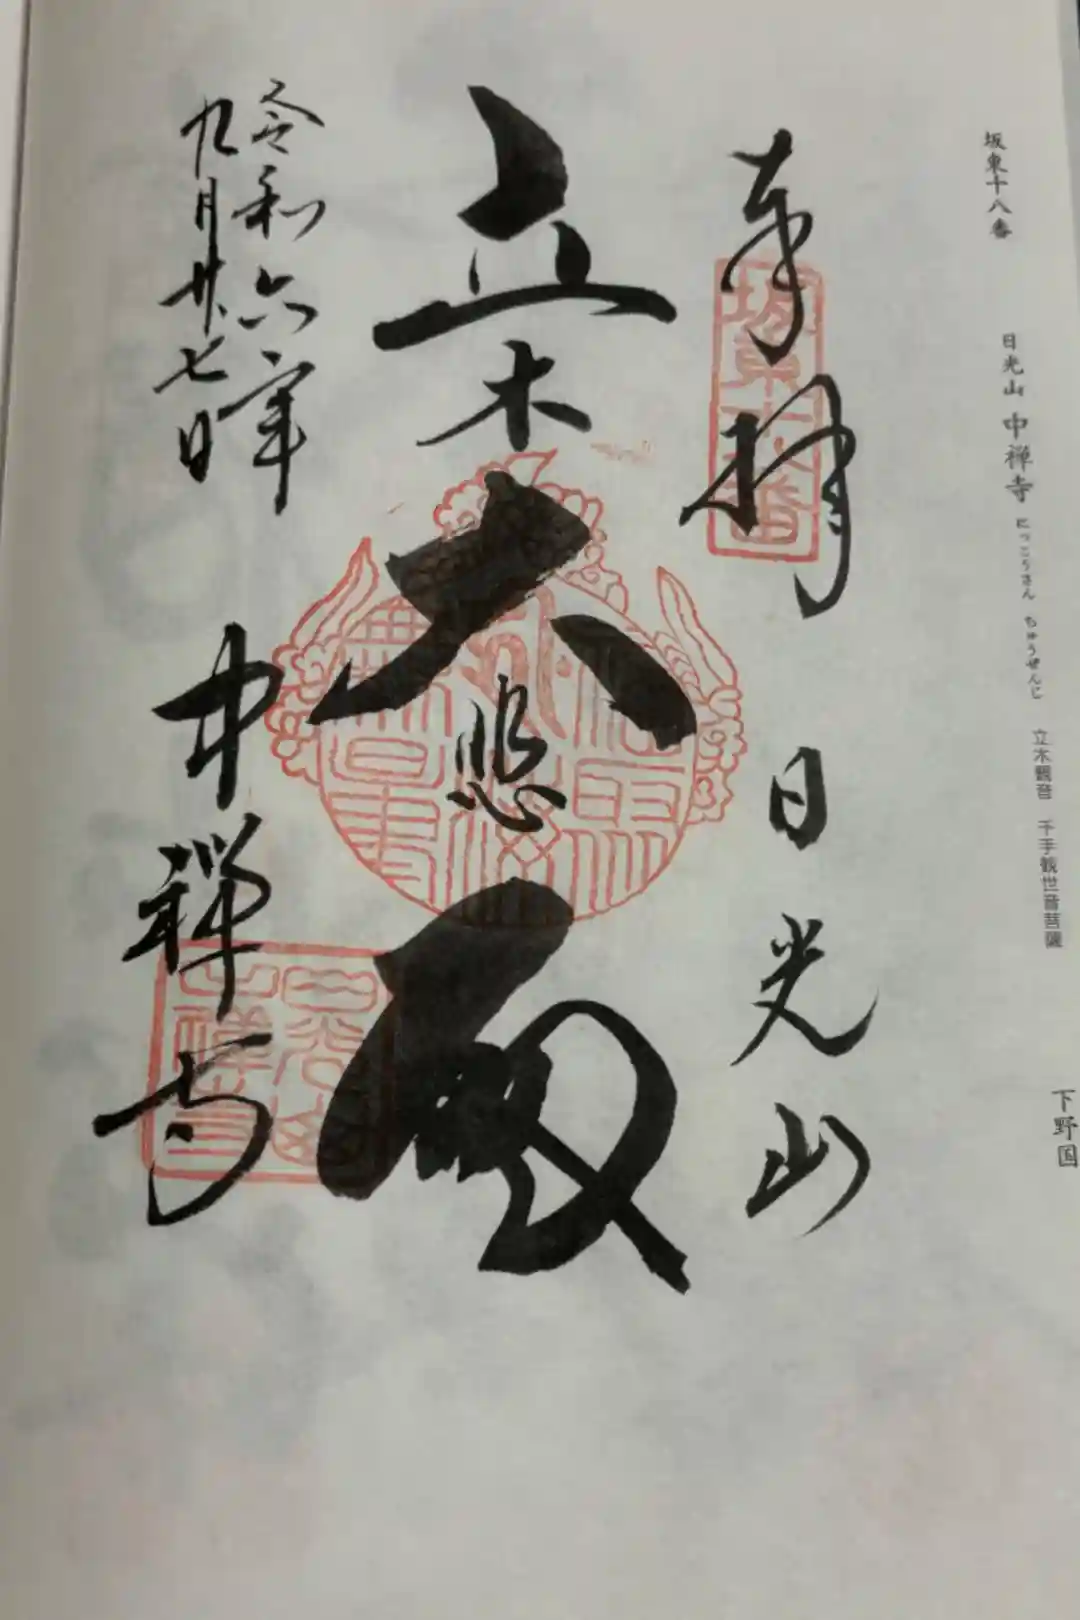 坂東十八番
日光山 中禅寺 にっこうさん ちゅうぜんじ 立木観音 千手観世音菩薩
下野国
奉拝 日光山
坂東十八番
立木大悲殿
令和六年
九月廿七日
中禅寺